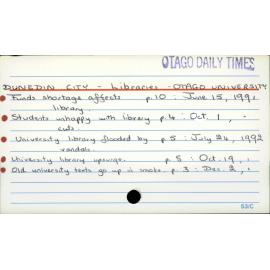 OTAGO DAILY TIMES
DUNEDIN CITY - Libraries - OTAGO UNIVERSITY
Funds shortage affects p.10 : June 15, 1991
library.
Students unhappy with library p.4 : Oct. 1, -
cuts.
University library flooded by p.5 : July 24, 1992
vandals
University library upsurge. p.5 : Oct. 19, ,
Old university texts go up in smoke. p.3 : Dec. 2, ,
53/C